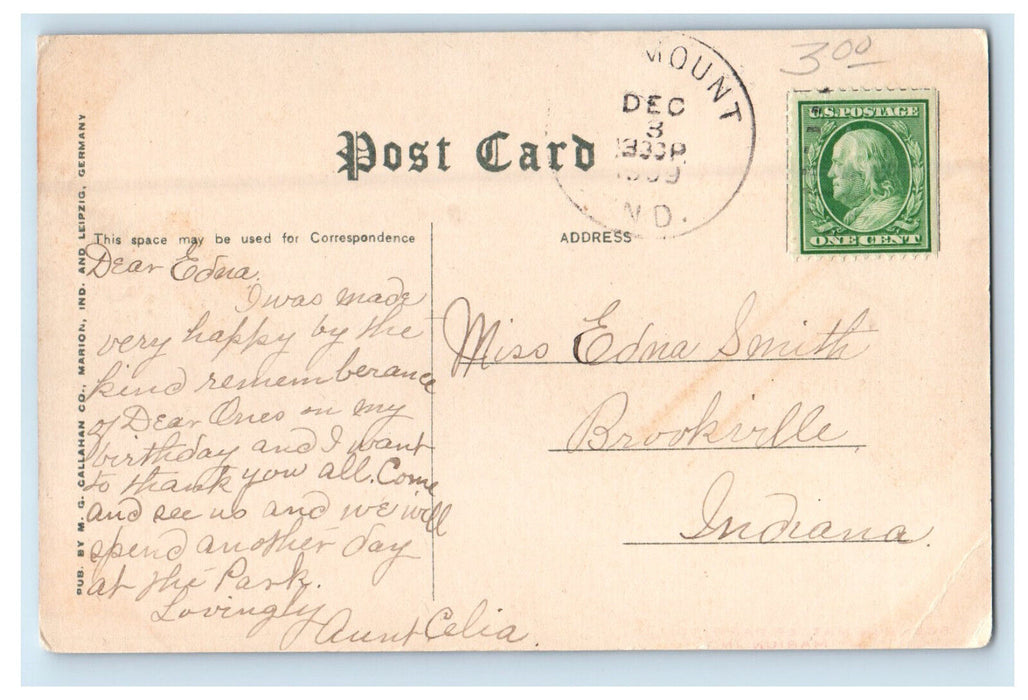 3.00
MOUNT
DEC
3
1909
ND.
U.S. POSTAGE
ONE CENT
Post Card
This space may be used for Correspondence
ADDRESS
PUB. BY M. G. CALLAHAN CO., MARION, IND. AND LEIPZIG, GERMANY
Dear Edna.
I was made
very happy by the
kind rememberance
of Dear Ones on my
birthday and I want
to thank you all. Come
and see us and we will
spend another day
at the Park.
Lovingly
Aunt Celia.
Miss Edna Smith
Brookville,
Indiana.